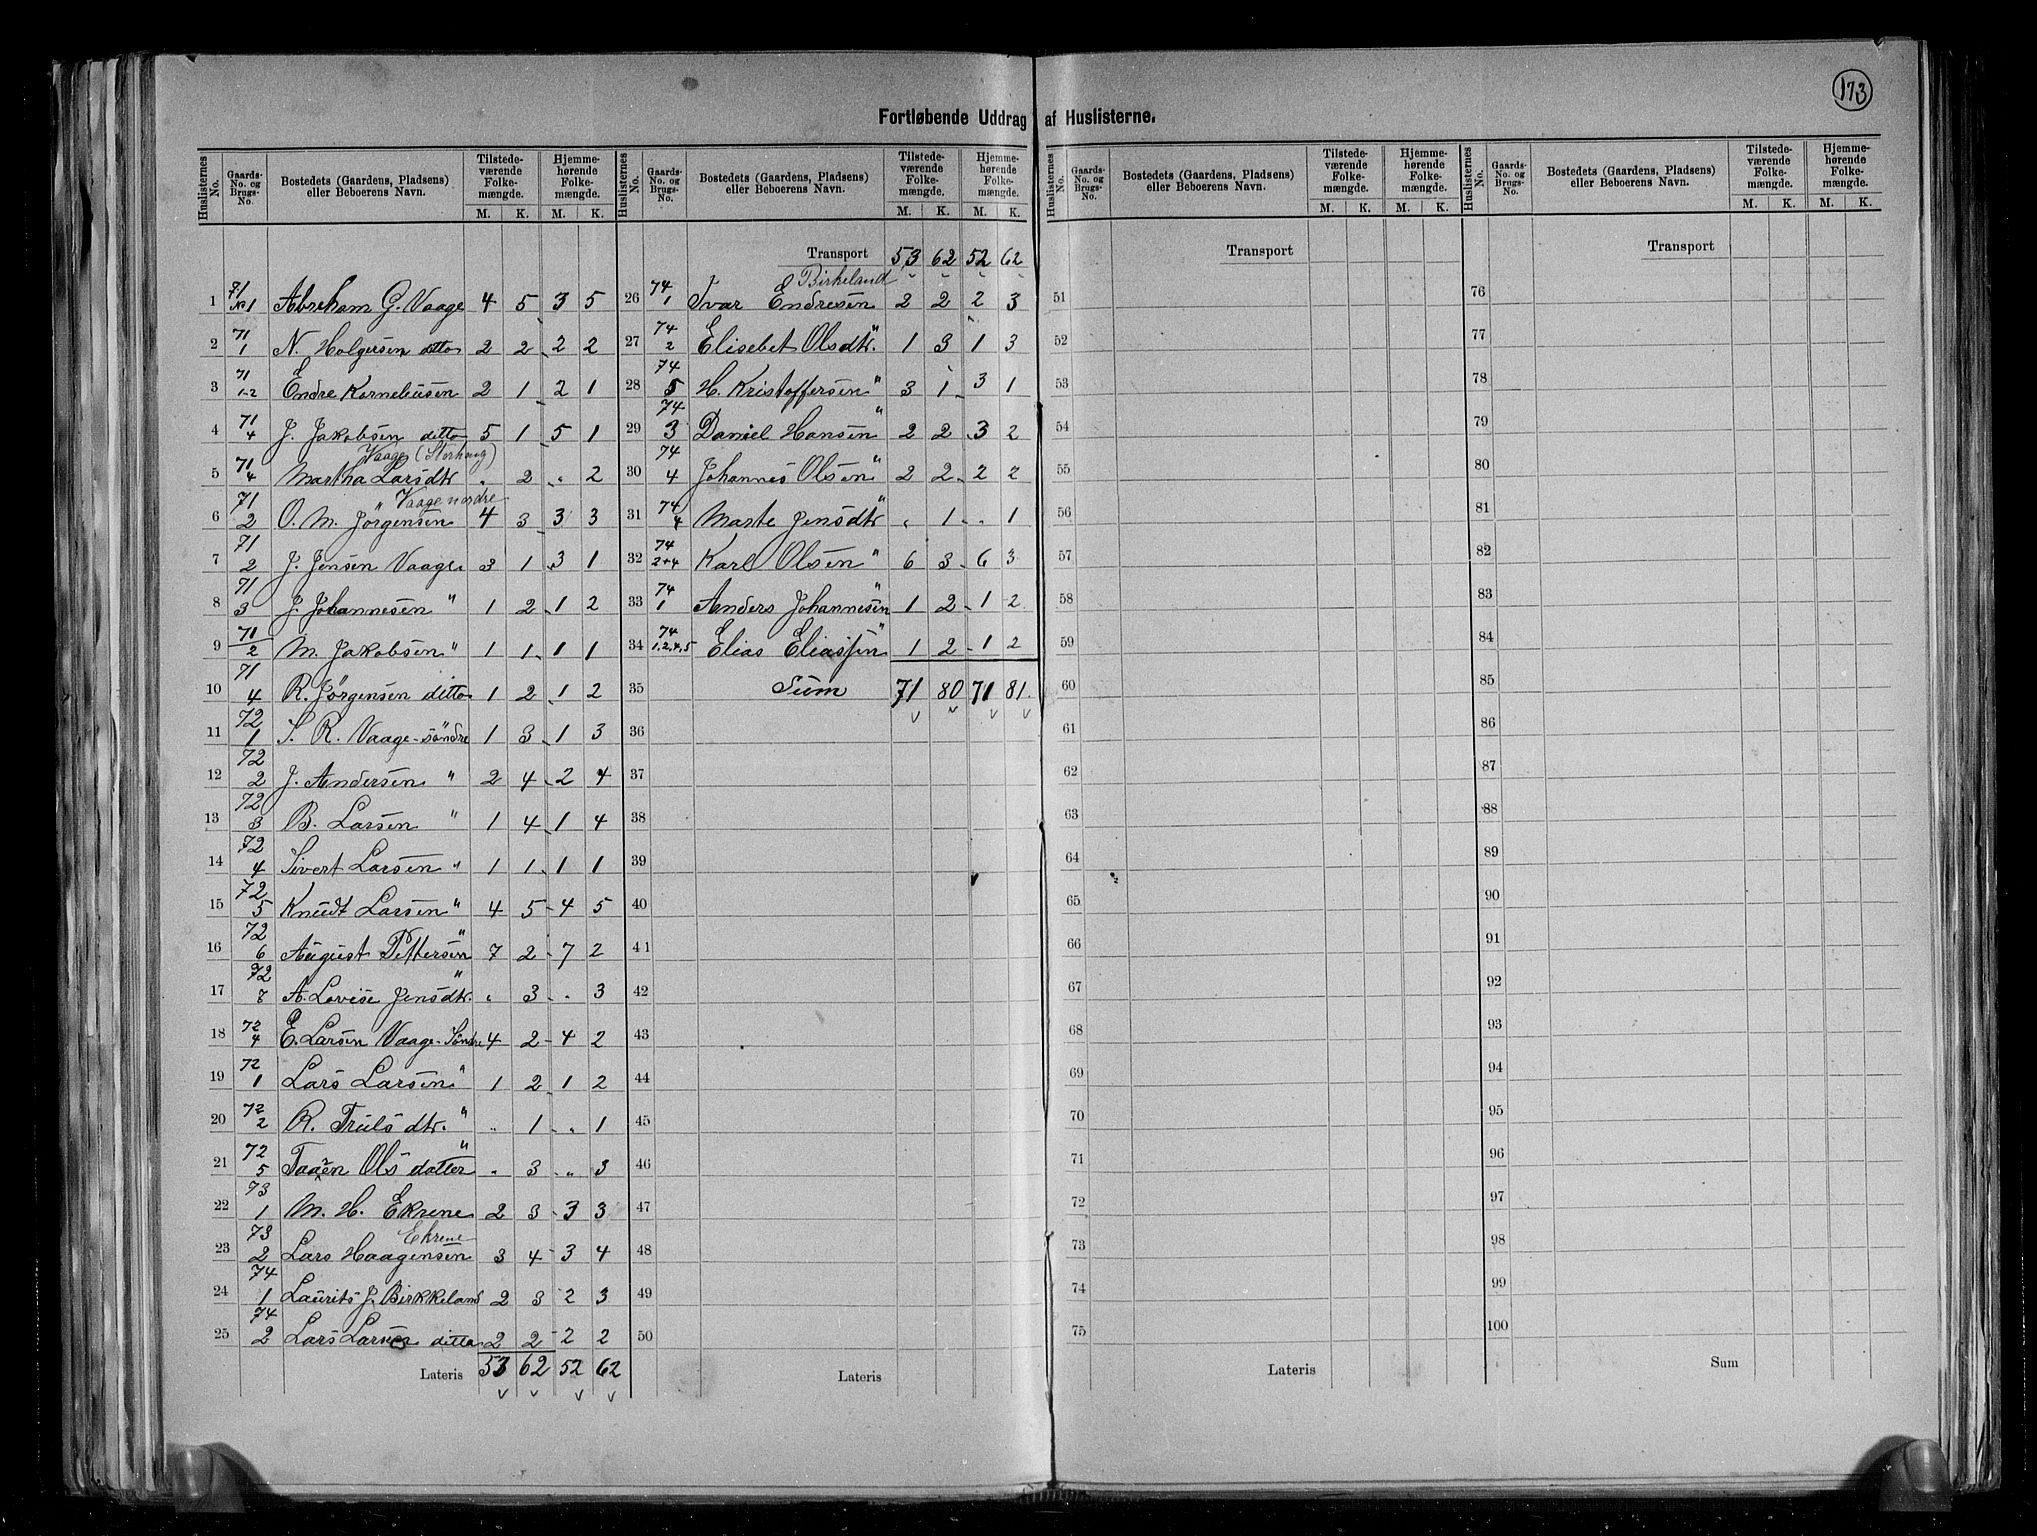 173
Fortløbende Uddrag af Huslisterne.
Huslisternes No. Gaards-No. og Brugs-No. Bostedets (Gaardens, Pladsens) eller Beboerens Navn. Tilstede-værende Folke-mængde. M. K. Hjemme-hørende Folke-mængde. M. K.
1 71 No 1 Abraham G. Vaage 4 5 3 5
2 71 1 N. Holgersen ditto 2 2 2 2
3 71 1-2 Endre Korneliusen 2 1 2 1
4 71 4 J. Jakobsen ditto 5 1 5 1
Vaage (Storhaug)
5 71 4 Martha Larsdtr " 2 " 2
" Vaage nordre
6 71 2 O. M. Jørgensen 4 3 3 3
7 71 2 J. Jensen Vaage 3 1 3 1
8 71 3 J. Johannesen " 1 2 1 2
9 71 2 M. Jakobsen " 1 1 1 1
10 71 4 R. Jørgensen ditto 1 2 1 2
11 72 1 S. R. Vaage-søndre 1 3 1 3
12 72 2 J. Andersen " 2 4 2 4
13 72 3 B. Larsen " 1 4 1 4
14 72 4 Sivert Larsen " 1 1 1 1
15 72 5 Knudt Larsen " 4 5 4 5
16 72 6 August Pettersen " 7 2 7 2
17 72 8 A. Lovise Jensdtr. " " 3 " 3
18 72 4 E. Larsen Vaage-Søndre 4 2 4 2
19 72 1 Lars Larsen " 1 2 1 2
20 72 2 R. Truls dtr. " " 1 " 1
21 72 5 Taaren Ols datter " " 3 " 3
22 73 1 M. H. Ekrene 2 3 3 3
Ekrene
23 73 2 Lars Haagensen 3 4 3 4
24 74 1 Laurits J. Birkkeland 2 3 2 3
25 74 2 Lars Larsen ditto 2 2 2 2
Lateris 53 62 52 62
Huslisternes No. Gaards-No. og Brugs-No. Bostedets (Gaardens, Pladsens) eller Beboerens Navn. Tilstede-værende Folke-mængde. M. K. Hjemme-hørende Folke-mængde. M. K.
Transport 53 62 52 62
Birkeland
26 74 1 Ivar Endresen 2 2 2 3
27 74 2 Elisebet Olsdtr. " 1 3 1 3
28 74 5 H. Kristoffersen " 3 1 3 1
29 74 3 Daniel Hansen " 2 2 3 2
30 74 4 Johannes Olsen " 2 2 2 2
31 74 4 Marte Jensdtr " " 1 " 1
32 74 2+4 Karl Olsen " 6 3 6 3
33 74 1 Anders Johannesen " 1 2 1 2
34 74 1,2,4,5 Elias Eliassen " 1 2 1 2
35 Sum 71 80 71 81
36
37
38
39
40
41
42
43
44
45
46
47
48
49
50
Lateris
Huslisternes No. Gaards-No. og Brugs-No. Bostedets (Gaardens, Pladsens) eller Beboerens Navn. Tilstede-værende Folke-mængde. M. K. Hjemme-hørende Folke-mængde. M. K.
Transport
51
52
53
54
55
56
57
58
59
60
61
62
63
64
65
66
67
68
69
70
71
72
73
74
75
Lateris
Huslisternes No. Gaards-No. og Brugs-No. Bostedets (Gaardens, Pladsens) eller Beboerens Navn. Tilstede-værende Folke-mængde. M. K. Hjemme-hørende Folke-mængde. M. K.
Transport
76
77
78
79
80
81
82
83
84
85
86
87
88
89
90
91
92
93
94
95
96
97
98
99
100
Sum